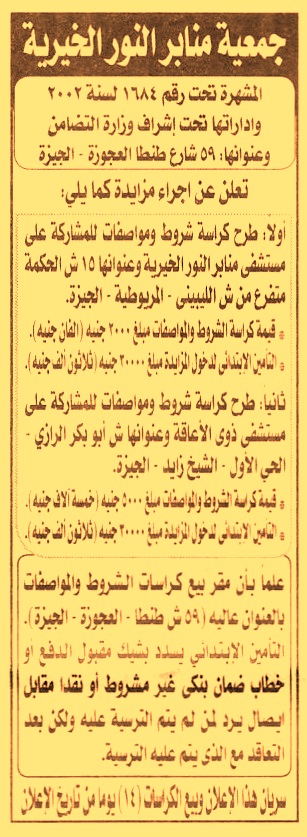 جمعية منابر النور الخيرية
المشهرة تحت رقم ١٦٨٤ لسنة ٢٠٠٢
واداراتها تحت إشراف وزارة التضامن
وعنوانها: ٥٩ شارع طنطا العجوزة - الجيزة
تعلن عن اجراء مزايدة كما يلي:
اولاً: طرح كراسة شروط ومواصفات للمشاركة على
مستشفى منابر النور الخيرية وعنوانها ١٥ ش الحكمة
متفرع من ش الليبينى - المريوطية - الجيزة.
* قيمة كراسة الشروط والمواصفات مبلغ ٢٠٠٠ جنيه (الفان جنيه).
* التأمين الإبتدائى لدخول المزايدة مبلغ ٣٠٠٠٠ جنيه (ثلاثون ألف جنيه).
ثانياً: طرح كراسة شروط ومواصفات للمشاركة على
مستشفى ذوى الأعاقة وعنوانها ش أبو بكر الرازي -
الحي الأول - الشيخ زايد - الجيزة.
* قيمة كراسة الشروط والمواصفات مبلغ ٥٠٠٠ جنيه (خمسة آلاف جنيه).
* التأمين الإبتدائى لدخول المزايدة مبلغ ٣٠٠٠٠ جنيه (ثلاثون ألف جنيه).
علماً بأن مقر بيع كراسات الشروط والمواصفات
بالعنوان عاليه (٥٩ ش طنطا - العجوزة - الجيزة).
التأمين الإبتدائي يسدد بشيك مقبول الدفع أو
خطاب ضمان بنكى غير مشروط أو نقدا مقابل
ايصال يرد لمن لم يتم الترسية عليه ولكن بعد
التعاقد مع الذى يتم عليه الترسية.
سريان هذا الإعلان وبيع الكراسات (١٤) يوما من تاريخ الإعلان